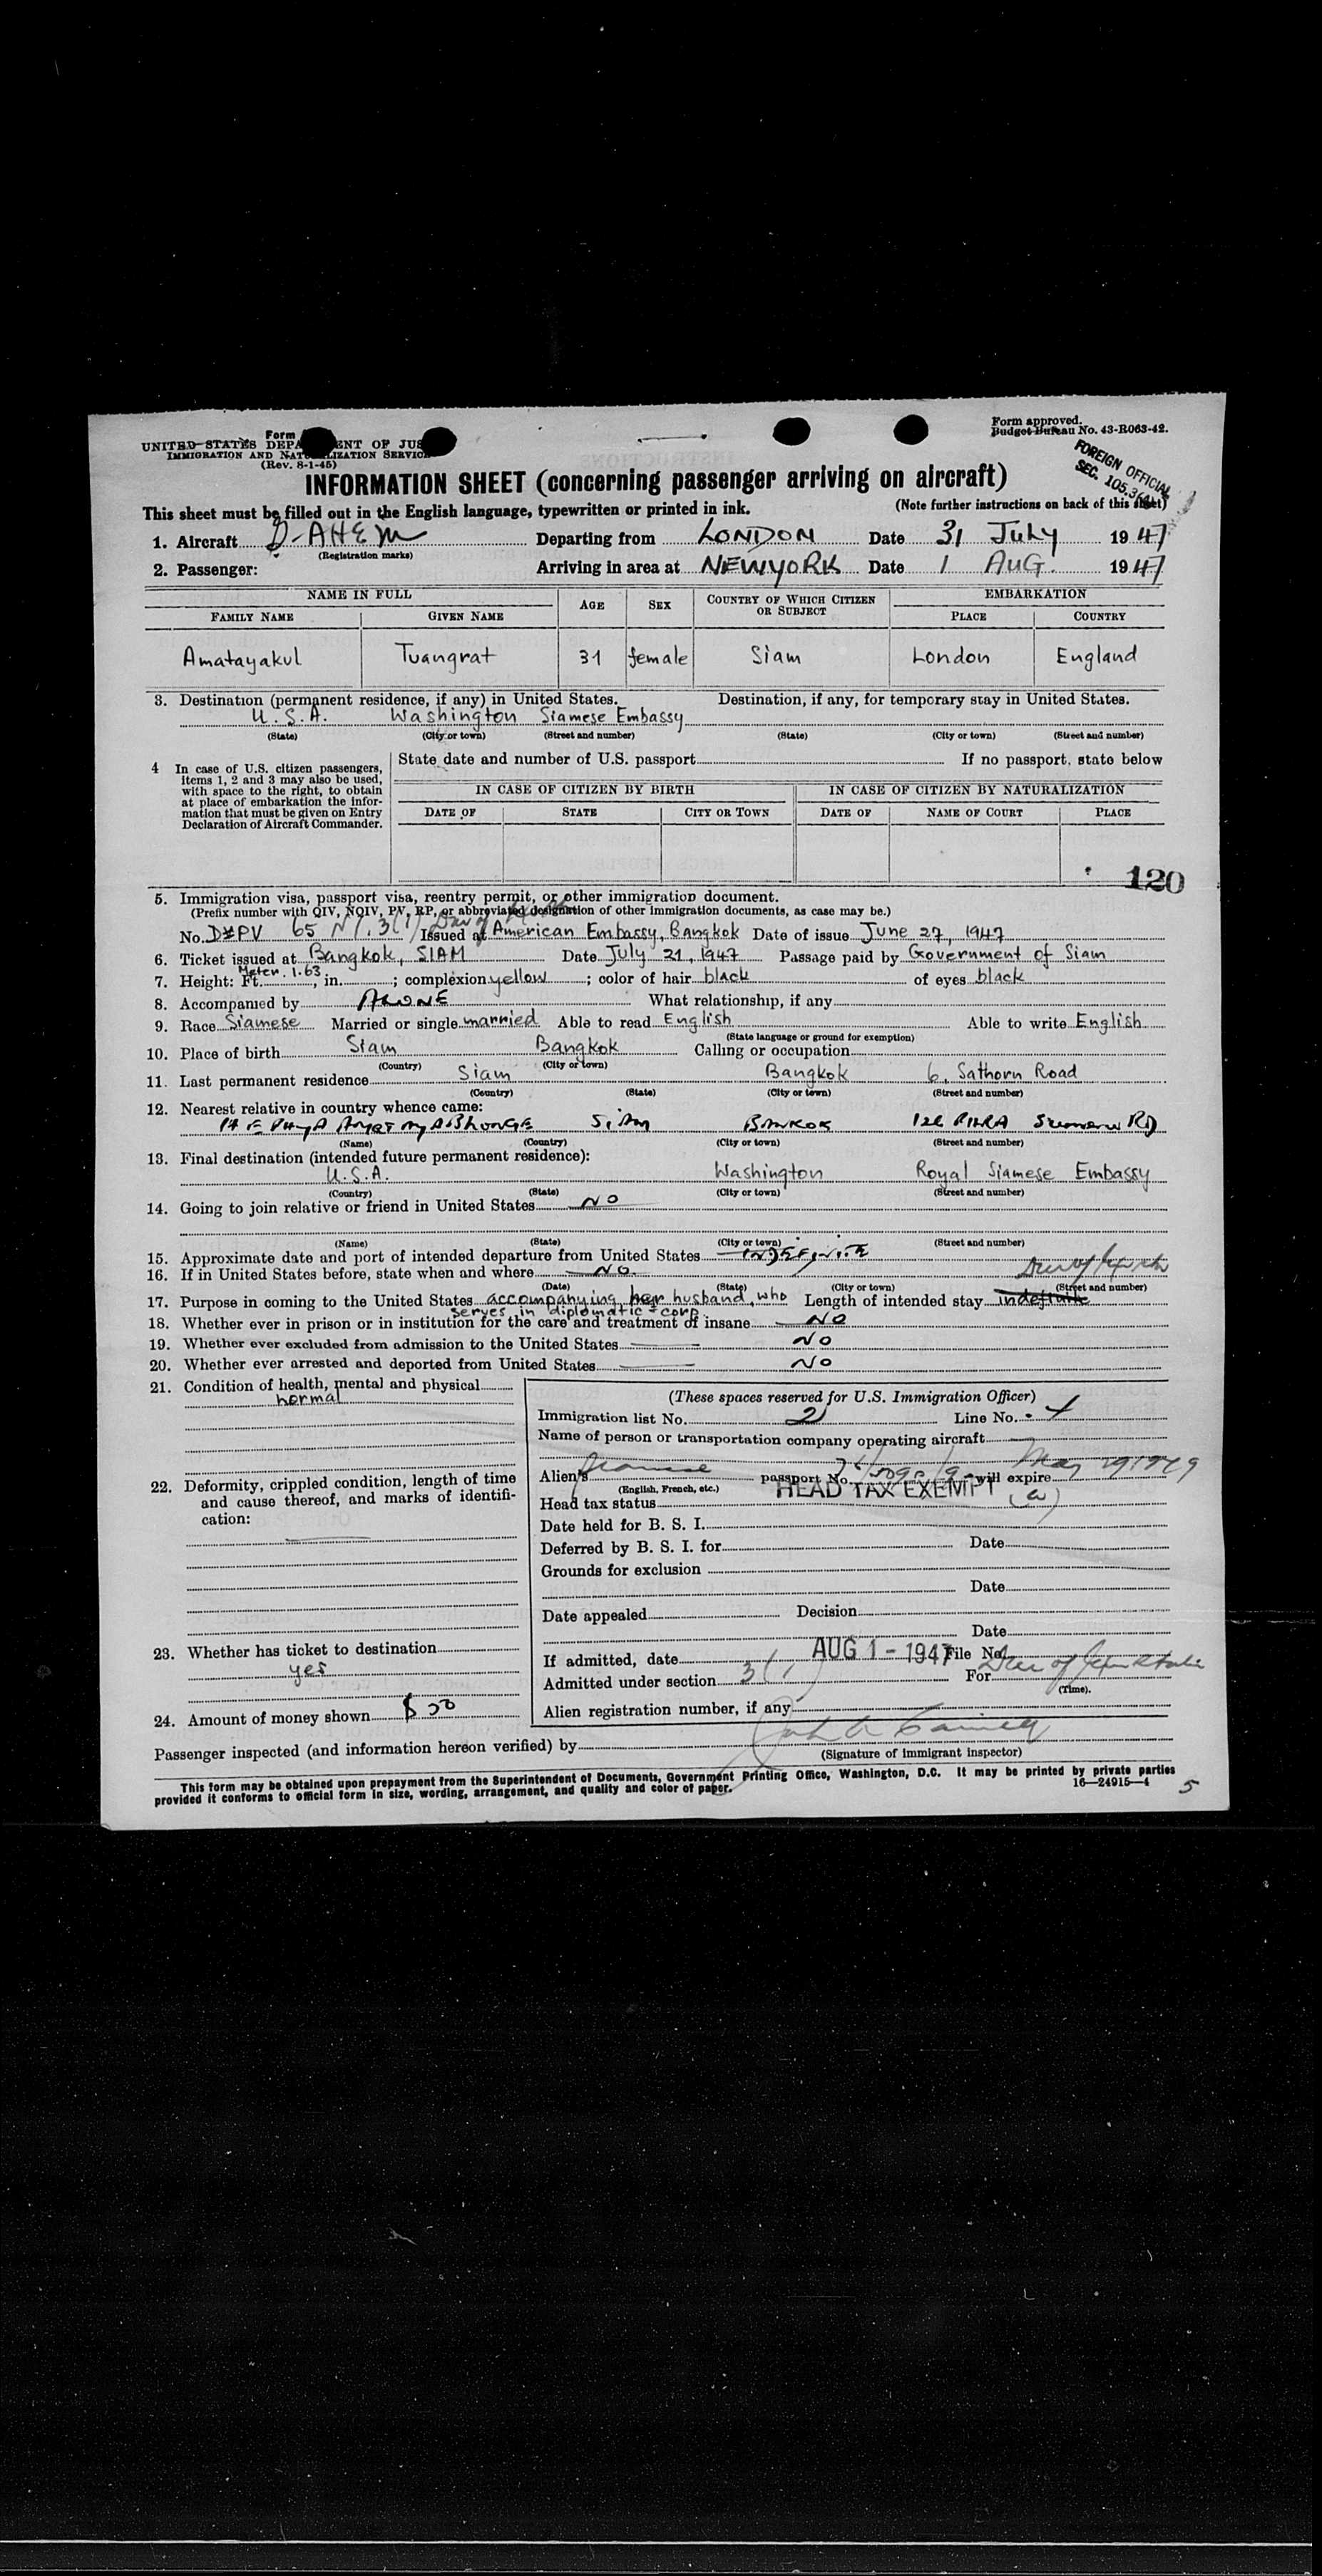 Form
UNITED STATES DEPA ENT OF JUS
IMMIGRATION AND NAT LIZATION SERVIC
(Rev. 8-1-45)
Form approved.
Budget Bureau No. 43-R063-42.
FOREIGN OFFICIAL
SEC. 105.3
INFORMATION SHEET (concerning passenger arriving on aircraft)
This sheet must be filled out in the English language, typewritten or printed in ink. (Note further instructions on back of this sheet)
1. Aircraft Departing from LONDON Date 31 July 1947
(Registration marks)
2. Passenger: Arriving in area at NEWYORK Date 1 AUG. 1947
NAME IN FULL AGE SEX COUNTRY OF WHICH CITIZEN OR SUBJECT EMBARKATION
FAMILY NAME GIVEN NAME PLACE COUNTRY
Amatayakul Tuangrat 31 female Siam London England
3. Destination (permanent residence, if any) in United States. Destination, if any, for temporary stay in United States.
U.S.A. Washington Siamese Embassy
(State) (City or town) (Street and number) (State) (City or town) (Street and number)
4 In case of U.S. citizen passengers, items 1, 2 and 3 may also be used, with space to the right, to obtain at place of embarkation the information that must be given on Entry Declaration of Aircraft Commander.
State date and number of U.S. passport If no passport, state below
IN CASE OF CITIZEN BY BIRTH IN CASE OF CITIZEN BY NATURALIZATION
DATE OF STATE CITY OR TOWN DATE OF NAME OF COURT PLACE
120
5. Immigration visa, passport visa, reentry permit, or other immigration document.
(Prefix number with QIV, NQIV, PV, RP, or abbreviated designation of other immigration documents, as case may be.)
No. PV 65 3(1) Issued at American Embassy, Bangkok Date of issue June 27, 1947
6. Ticket issued at Bangkok, SIAM Date July 21, 1947 Passage paid by Government of Siam
7. Height: Ft. Meter. 1.63, in. ; complexion yellow ; color of hair black of eyes black
8. Accompanied by ALONE What relationship, if any
9. Race Siamese Married or single married Able to read English Able to write English
(State language or ground for exemption)
10. Place of birth Siam Bangkok Calling or occupation
(Country) (City or town)
11. Last permanent residence Siam Bangkok 6, Sathorn Road
(Country) (State) (City or town) (Street and number)
12. Nearest relative in country whence came:
SiAm
(Name) (Country) (City or town) (Street and number)
13. Final destination (intended future permanent residence):
U.S.A. Washington Royal Siamese Embassy
(Country) (State) (City or town) (Street and number)
14. Going to join relative or friend in United States NO
(Name) (State) (City or town) (Street and number)
15. Approximate date and port of intended departure from United States INDEFINITE
16. If in United States before, state when and where NO
(Date) (State) (City or town) (Street and number)
17. Purpose in coming to the United States accompanying her husband, who Length of intended stay indefinite
serves in diplomatic corp.
18. Whether ever in prison or in institution for the care and treatment of insane NO
19. Whether ever excluded from admission to the United States NO
20. Whether ever arrested and deported from United States NO
21. Condition of health, mental and physical
normal
22. Deformity, crippled condition, length of time and cause thereof, and marks of identification:
23. Whether has ticket to destination
yes
24. Amount of money shown
(These spaces reserved for U.S. Immigration Officer)
Immigration list No. 2 Line No.
Name of person or transportation company operating aircraft
Alien's Siamese passport No. will expire May
(English, French, etc.)
HEAD TAX EXEMPT
Head tax status
Date held for B. S. I.
Deferred by B. S. I. for Date
Grounds for exclusion
Date
Date appealed Decision
Date
If admitted, date AUG 1 - 1947 File No.
Admitted under section 3(1) For
(Time).
Alien registration number, if any
Passenger inspected (and information hereon verified) by
(Signature of immigrant inspector)
This form may be obtained upon prepayment from the Superintendent of Documents, Government Printing Office, Washington, D.C. It may be printed by private parties
provided it conforms to official form in size, wording, arrangement, and quality and color of paper. 16—24915—4
5